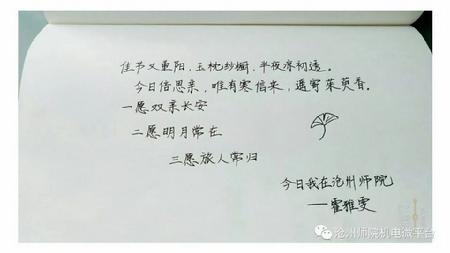 佳节又重阳，玉枕纱橱，半夜凉初透。
今日倍思亲，唯有寒信来，遥寄茱萸香。
一愿双亲长安
二愿明月常在
三愿旅人常归
今日我在沧州师院
——霍雅雯
沧州师院机电微平台